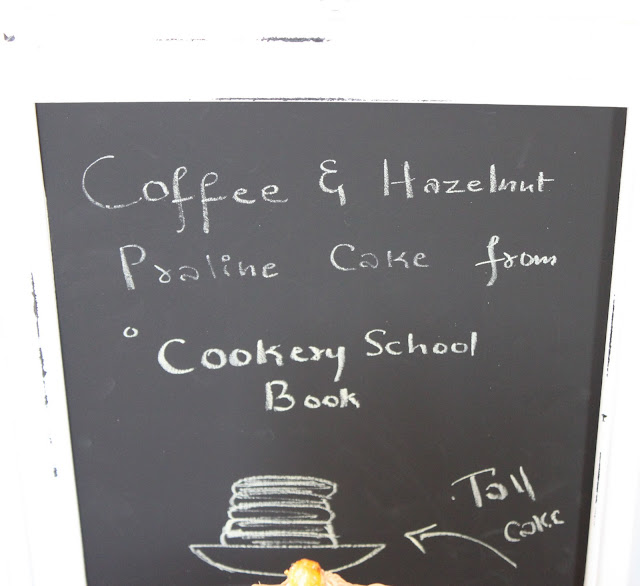 Coffee & Hazelnut
Praline Cake from
Cookery School
Book
Tall
Cake